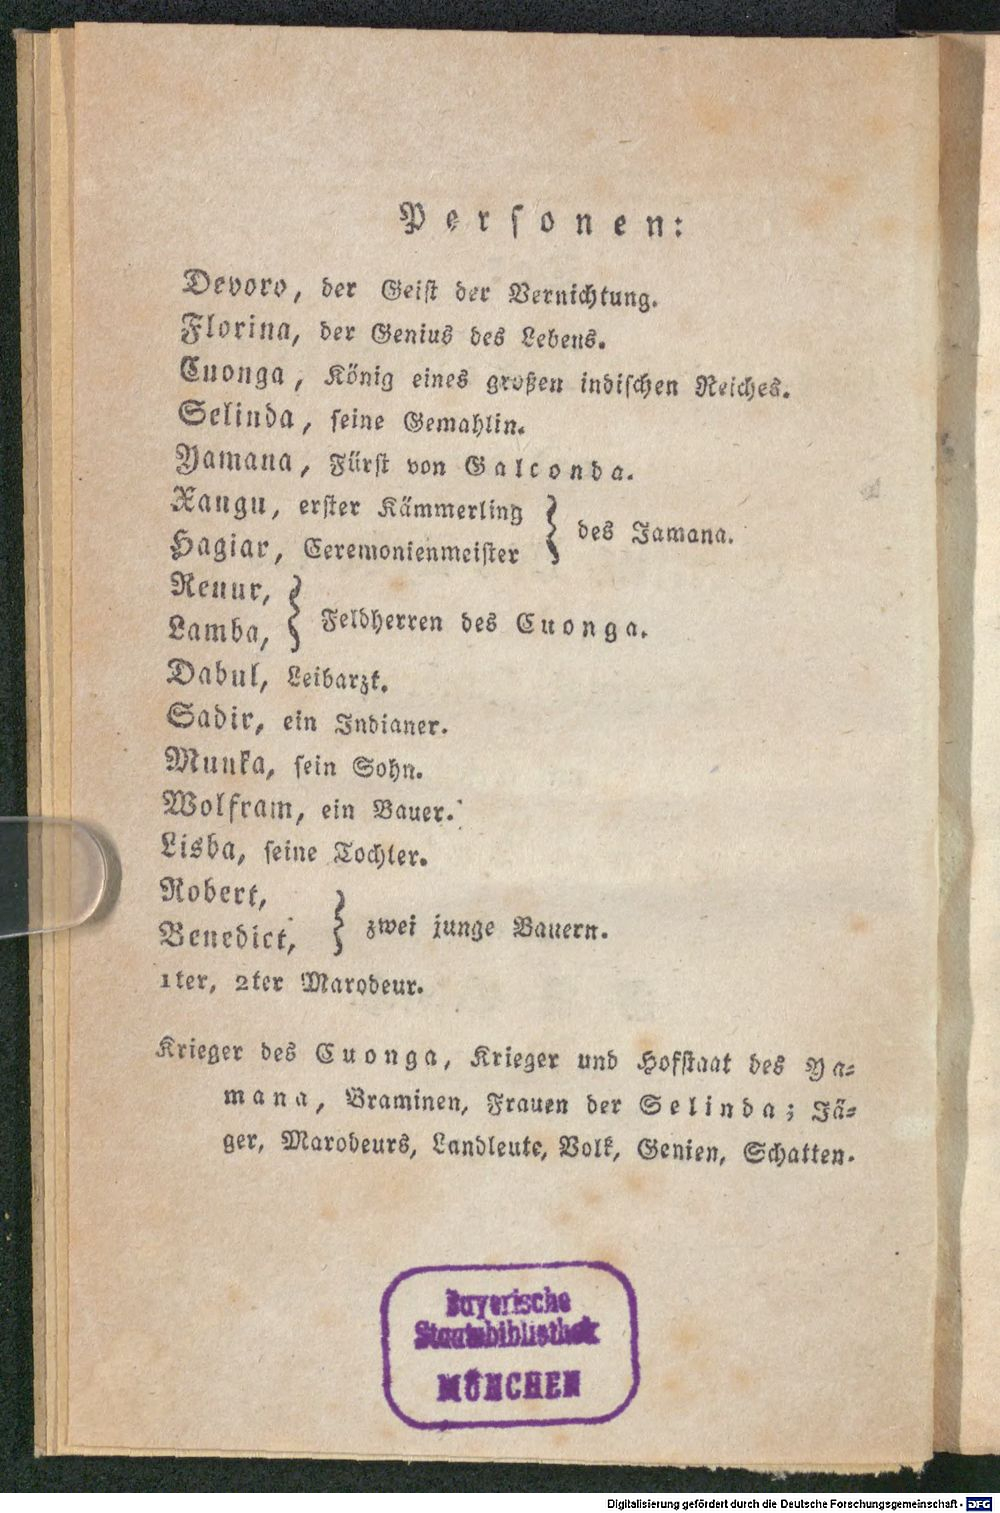 Personen:
Devoro, der Geist der Vernichtung.
Florina, der Genius des Lebens.
Cuonga, König eines großen indischen Reiches.
Selinda, seine Gemahlin.
Yamana, Fürst von Galconda.
Xangu, erster Kämmerling
Hagiar, Ceremonienmeister } des Jamana.
Renur,
Lamba, } Feldherren des Cuonga.
Dabul, Leibarzt.
Sadir, ein Indianer.
Munka, sein Sohn.
Wolfram, ein Bauer.
Lisba, seine Tochter.
Robert,
Benedict, } zwei junge Bauern.
1ter, 2ter Marodeur.
Krieger des Cuonga, Krieger und Hofstaat des Ya-
mana, Braminen, Frauen der Selinda; Jä-
ger, Marodeurs, Landleute, Volk, Genien, Schatten.
Bayerische
Staatsbibliothek
MÜNCHEN
Digitalisierung gefördert durch die Deutsche Forschungsgemeinschaft - DFG